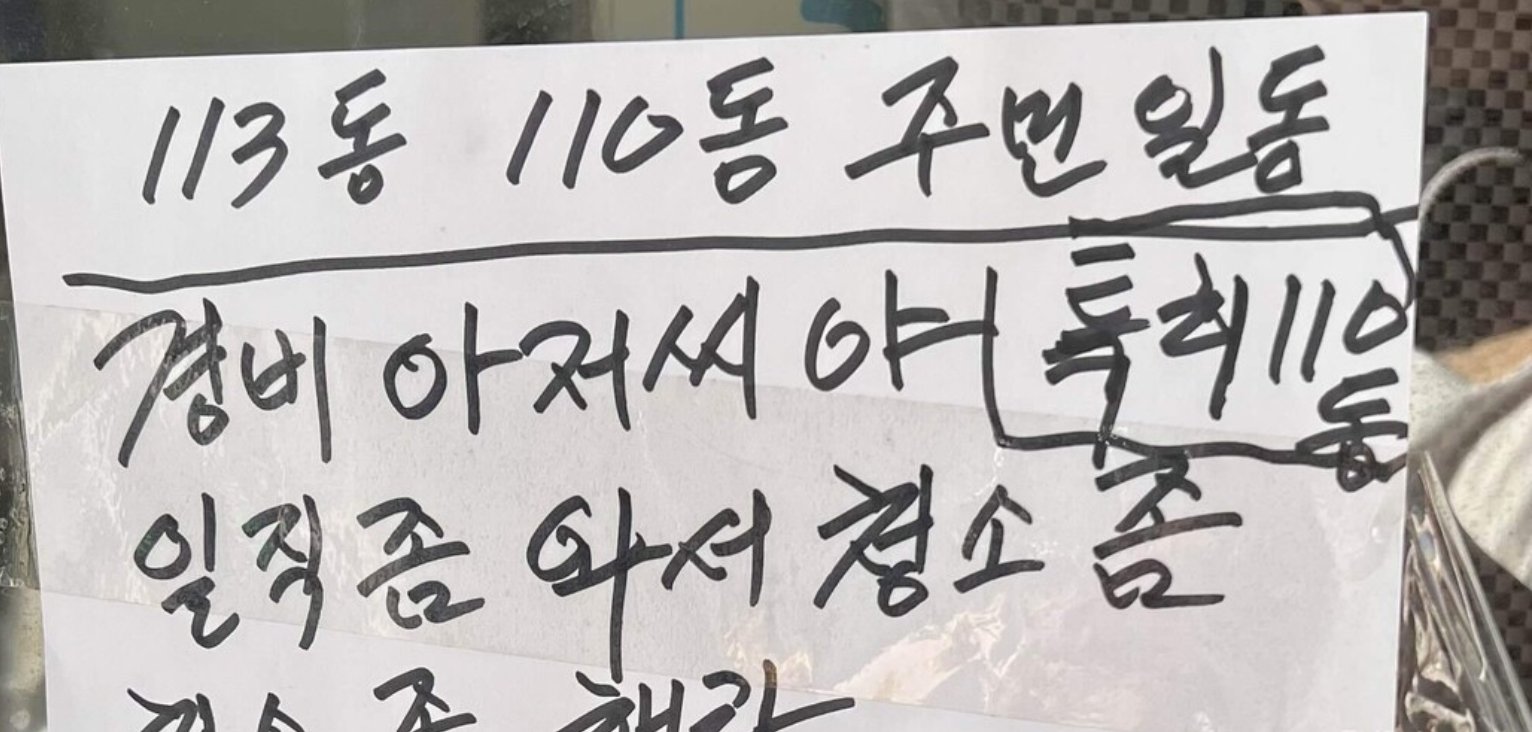 113동 110동 주먼일돔
경비 아저씨 야 특히 110동
일직좀 와서 청소 좀
청소 좀 해라